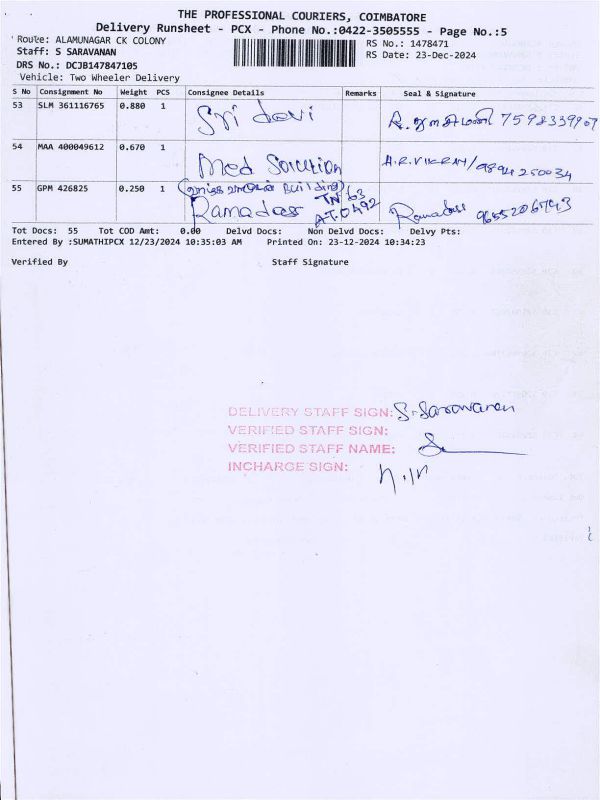 THE PROFESSIONAL COURIERS, COIMBATORE
Delivery Runsheet - PCX - Phone No.:0422-3505555 - Page No.:5
Route: ALAMUNAGAR CK COLONY
RS No.: 1478471
Staff: S SARAVANAN
RS Date: 23-Dec-2024
DRS No.: DCJB147847105
Vehicle: Two Wheeler Delivery
S No Consignment No Weight PCS Consignee Details Remarks Seal & Signature
53 SLM 361116765 0.880 1 Sri devi 7598339907
54 MAA 400049612 0.670 1 Med Solution A.R.VIKRAM/9894250034
55 GPM 426825 0.250 1 Building) TN 63
Ramadoss AZ0492 Ramadoss 9655206743
Tot Docs: 55 Tot COD Amt: 0.00 Delvd Docs: Non Delvd Docs: Delvy Pts:
Entered By :SUMATHIPCX 12/23/2024 10:35:03 AM Printed On: 23-12-2024 10:34:23
Verified By Staff Signature
DELIVERY STAFF SIGN: S. Saravanan
VERIFIED STAFF SIGN:
VERIFIED STAFF NAME:
INCHARGE SIGN: